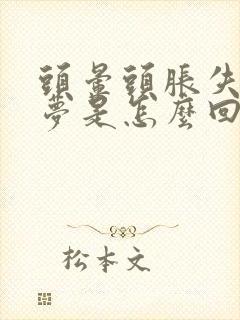 頭暈頭脹失
夢是怎麼回
松本文